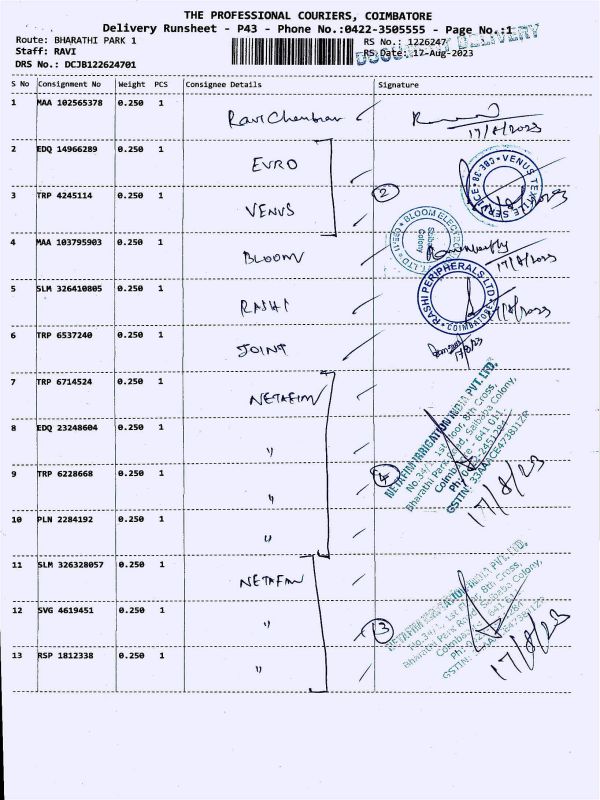 THE PROFESSIONAL COURIERS, COIMBATORE
Delivery Runsheet - P43 - Phone No.:0422-3505555 - Page No.:1
Route: BHARATHI PARK 1
RS No.: 1226247
Staff: RAVI
RS Date: 17-Aug-2023
DRS No.: DCJB122624701
DELIVERY
S No Consignment No Weight PCS Consignee Details Signature
1 MAA 102565378 0.250 1
17/8/2023
2 EDQ 14966289 0.250 1 EVRO
VENUS TEXTILE SERVICE CBE 38
3 TRP 4245114 0.250 1 VENUS 2
4 MAA 103795903 0.250 1 BLOOM
BLOOM Saibaba Colony
17/8/2023
5 SLM 326410805 0.250 1 RASHI
RASHI PERIPHERALS LTD COIMBATORE
17/8/2023
6 TRP 6537240 0.250 1 JOINT
17/8/23
7 TRP 6714524 0.250 1 NETAFIM
8 EDQ 23248604 0.250 1 "
9 TRP 6228668 0.250 1 " 4
10 PLN 2284192 0.250 1 "
NETAFIM IRRIGATION INDIA PVT. LTD.
No.34/1, 1st Floor, 8th Cross,
Bharathi Park Road, Saibaba Colony,
17/8/23
11 SLM 326328057 0.250 1 NETAFIM
12 SVG 4619451 0.250 1 " 3
13 RSP 1812338 0.250 1 "
PVT. LTD.
No.34/1, 1st Floor, 8th Cross,
Bharathi Park Road, Saibaba Colony,
17/8/23